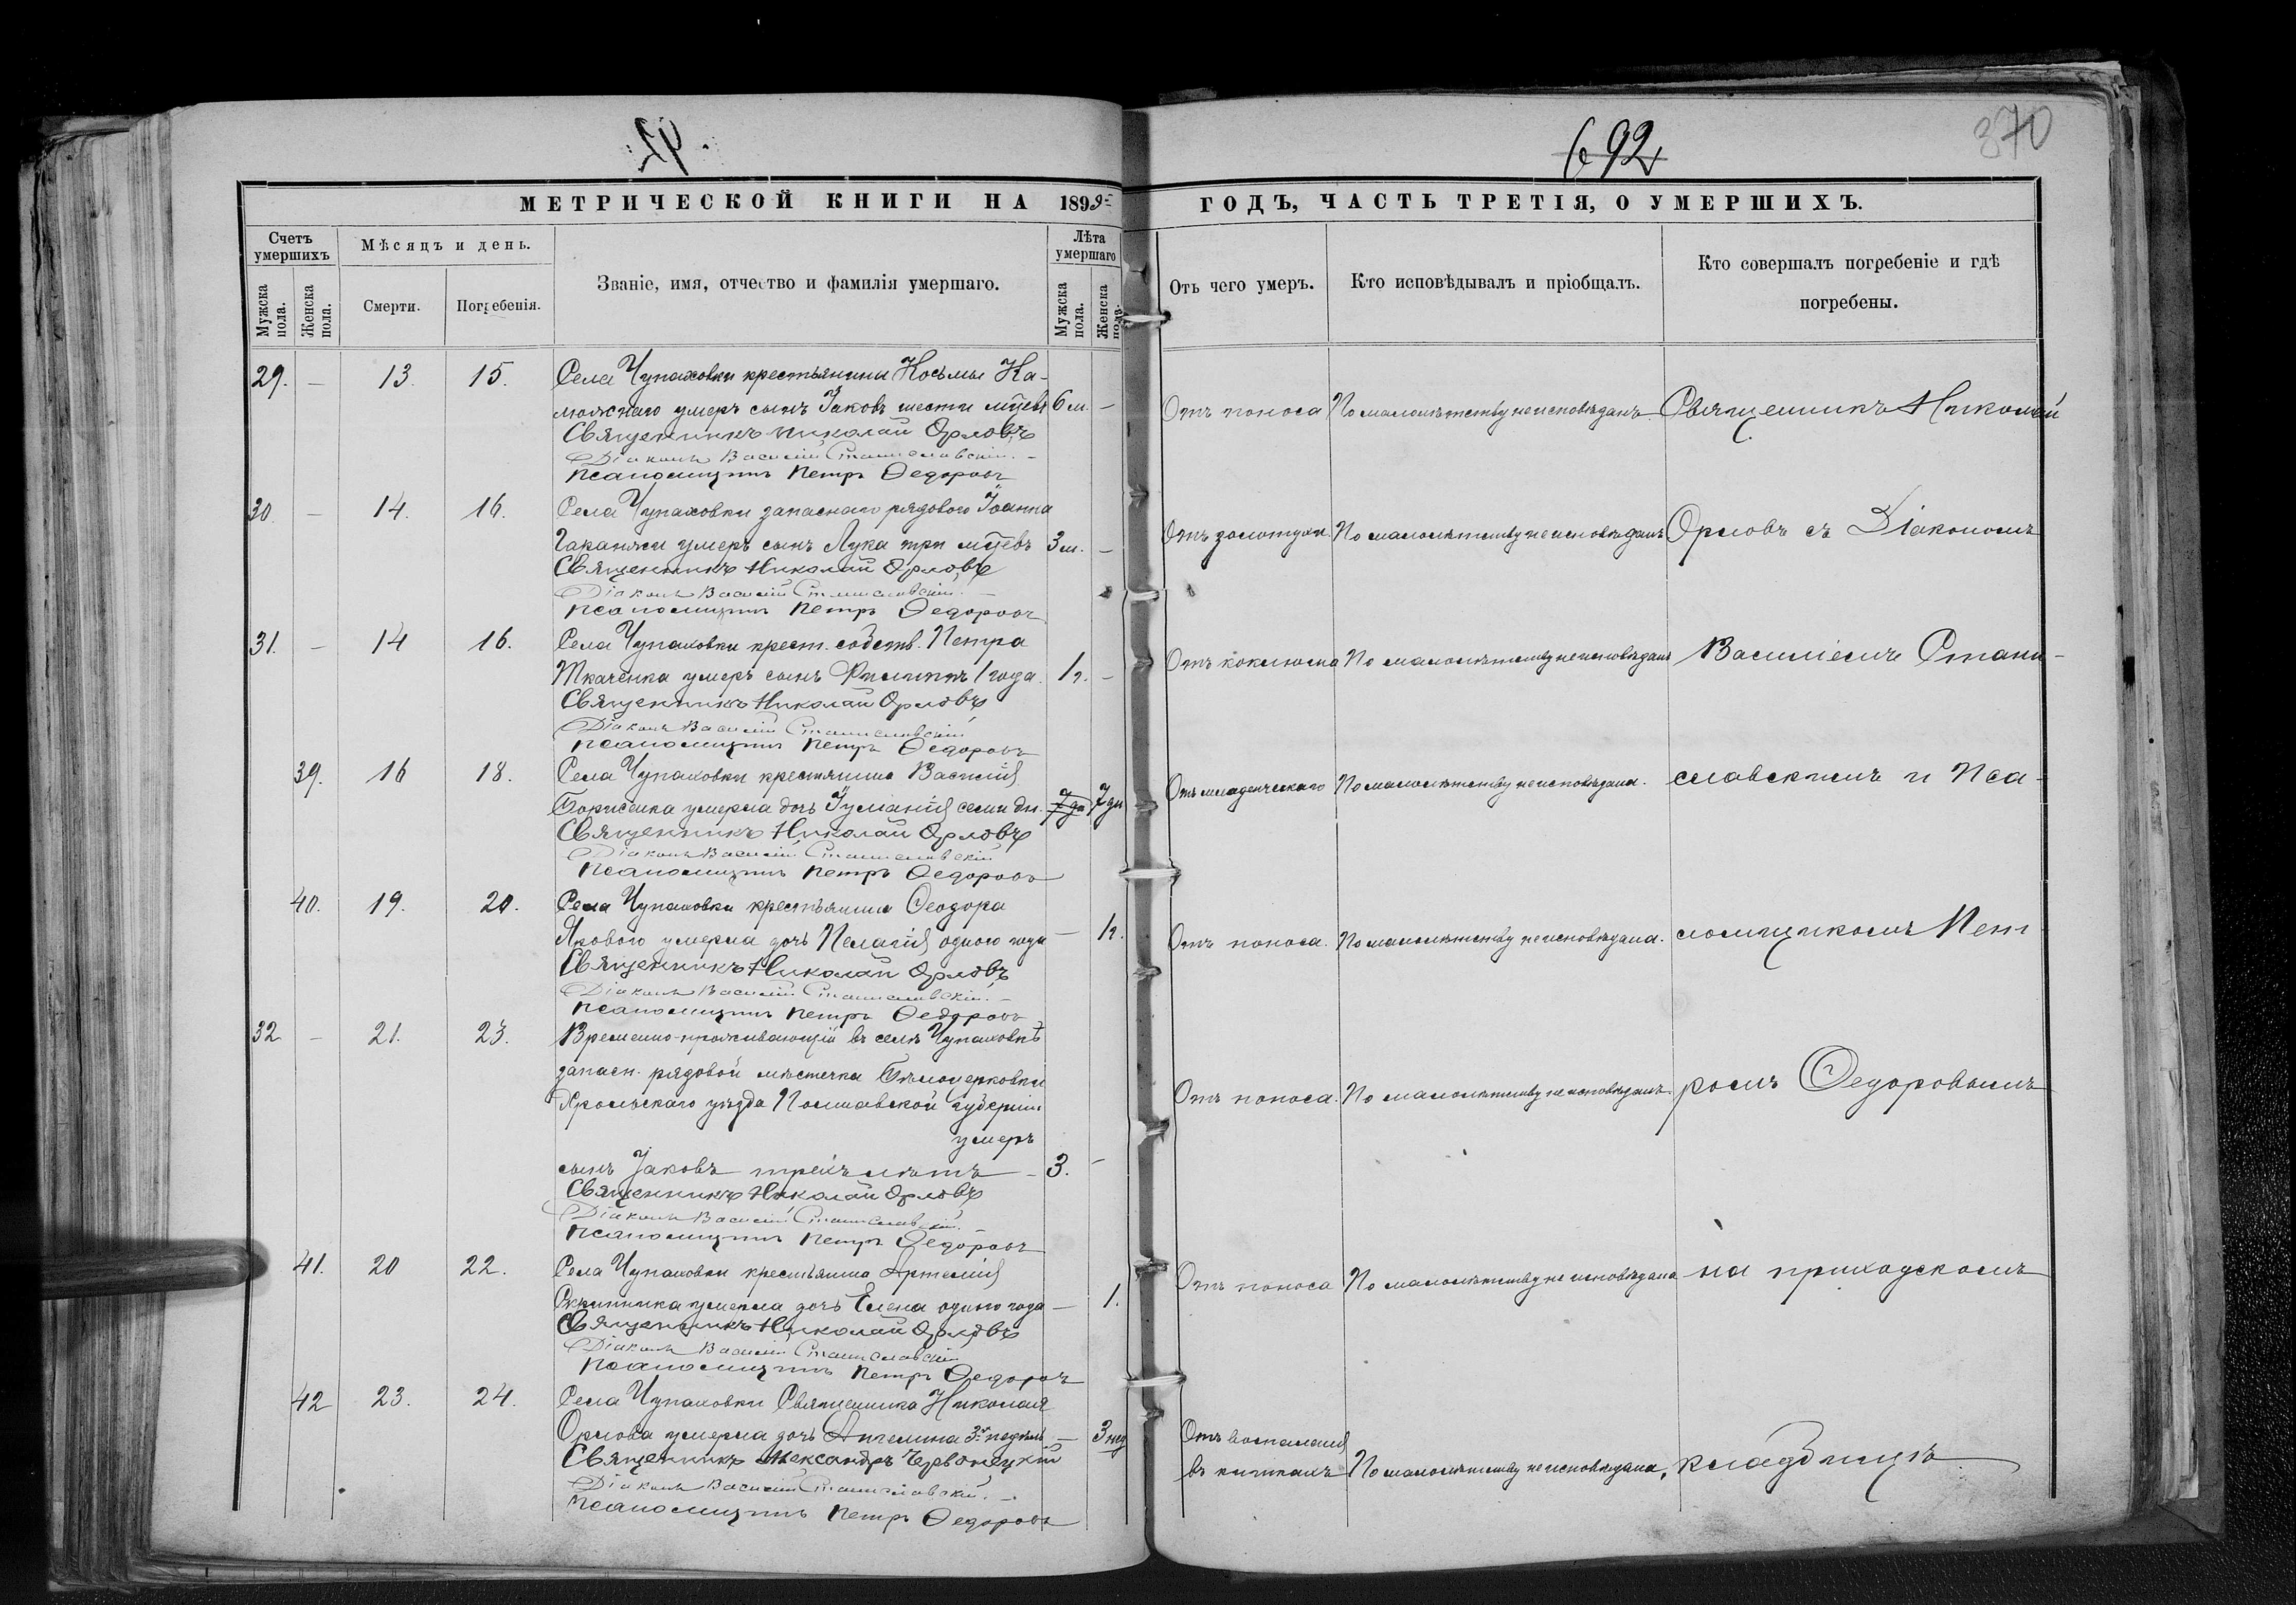 92
370
МЕТРИЧЕСКОЙ КНИГИ НА 1899 ГОДЪ, ЧАСТЬ ТРЕТІЯ, О УМЕРШИХЪ.
Счетъ умершихъ
Мѣсяцъ и день.
Званіе, имя, отчество и фамилія умершаго.
Лѣта умершаго
Отъ чего умеръ.
Кто исповѣдывалъ и пріобщалъ.
Кто совершалъ погребеніе и гдѣ
погребены.
Мужска пола.
Женска пола.
Смерти.
Погребенія.
Мужска пола.
Женска пола.
29. – 13. 15. Села Чупаховки крестьянина Косьмы Ка-
люжнаго умеръ сынъ Іаковъ шести мѣс� 6 м. – Отъ поноса По малолѣтству не исповѣданъ Священникъ Николай
Священникъ Николай Орловъ
Діаконъ Василій Станиславскій.
Псаломщикъ Петръ Ѳедоровъ
30 – 14. 16. Села Чупаховки запаснаго рядового Іоанна
умеръ сынъ Лука три мѣс� 3 м. – Отъ золотухи По малолѣтству не исповѣданъ Орловъ съ Діакономъ
Священникъ Николай Орловъ
Діаконъ Василій Станиславскій.
Псаломщикъ Петръ Ѳедоровъ
31. – 14 16. Села Чупаховки крест. собств. Петра
Ткаченка умеръ сынъ Филиппъ 1 года. 1 г. – Отъ коклюша По малолѣтству не исповѣданъ Василіемъ Стани-
Священникъ Николай Орловъ
Діаконъ Василій Станиславскій
Псаломщикъ Петръ Ѳедоровъ
39. 16 18. Села Чупаховки крестьянина Василія
Борисенка умерла дочь Іуліанія семи дн. 7 дн Отъ младенческаго По малолѣтству не исповѣдана. славскимъ и Пса-
Священникъ Николай Орловъ
Діаконъ Василій Станиславскій
Псаломщикъ Петръ Ѳедоровъ
40. 19. 20. Села Чупаховки крестьянина Ѳеодора
Ярового умерла дочь Пелагія одного года – 1 г. Отъ поноса. По малолѣтству не исповѣдана. ломщикомъ Пет
Священникъ Николай Орловъ
Діаконъ Василій Станиславскій. –
Псаломщикъ Петръ Ѳедоровъ
32 – 21. 23. Временно-проживающій въ селѣ Чупаховкѣ
запасн. рядовой мѣстечка Бѣлоцерковки
Хорольскаго уѣзда Полтавской губерніи
умеръ
сынъ Іаковъ трехъ лѣтъ – 3. – Отъ поноса. По малолѣтству не исповѣданъ. ромъ Ѳедоровымъ
Священникъ Николай Орловъ
Діаконъ Василій Станиславскій.
Псаломщикъ Петръ Ѳедоровъ
41. 20 22. Села Чупаховки крестьянина Артемія
Скрипника умерла дочь Елена одного года – 1. Отъ поноса По малолѣтству не исповѣдана на приходскомъ
Священникъ Николай Орловъ
Діаконъ Василій Станиславскій
Псаломщикъ Петръ Ѳедоровъ
42 23. 24. Села Чупаховки Священника Николая
Орлова умерла дочь Ангелина 3х недѣль – 3 нед Отъ воспаленія
въ кишкахъ По малолѣтству не исповѣдана, кладбищѣ
Священникъ Александръ Червонецкій
Діаконъ Василій Станиславскій. –
Псаломщикъ Петръ Ѳедоровъ